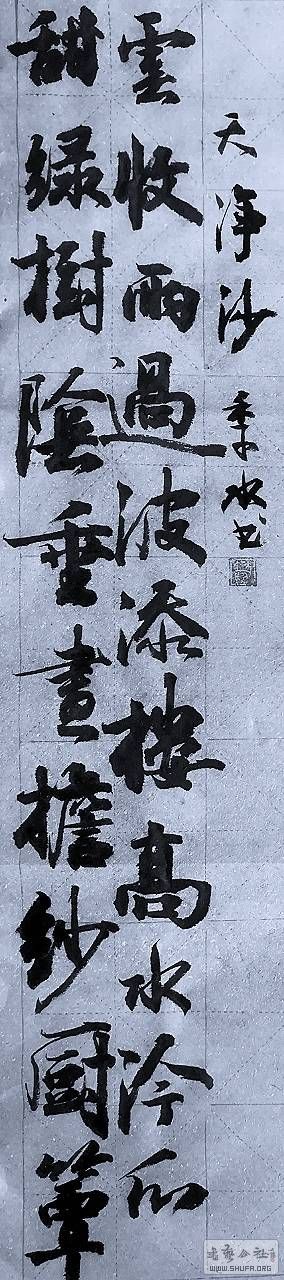 天淨沙 季水书
雲收雨過波添樓高水冷瓜
甜緑樹陰垂畫檐紗厨簟
书艺公社
WWW.SHUFA.ORG